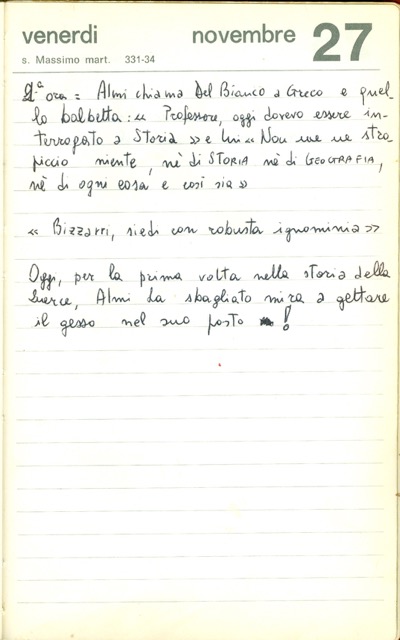 venerdi novembre 27
s. Massimo mart. 331-34
2ª ora: Almi chiama Del Bianco a Greco e quel-
lo balbetta: « Professore, oggi dovevo essere in-
terrogato a Storia » e lui « Non me ne stro-
piccio niente, nè di STORIA nè di GEOGRAFIA,
nè di ogni cosa e così sia »
« Bizzarri, siedi con robusta ignominia »
Oggi, per la prima volta nella storia della
Almi ha sbagliato mira a gettare
il gesso nel suo posto !